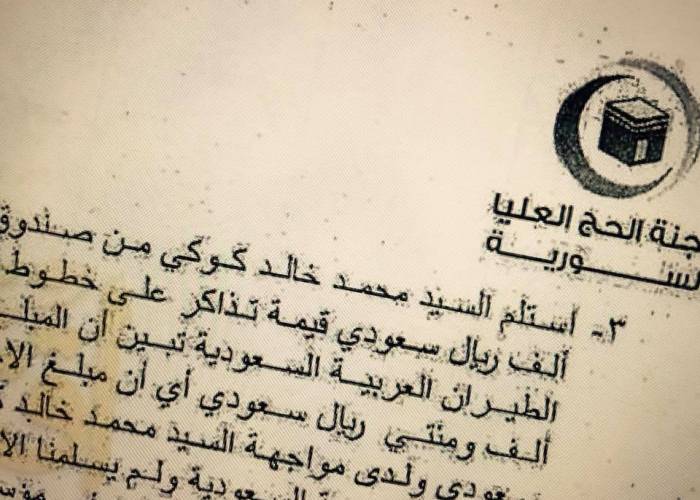 جنة الحج العليا
ســوريـــة
٣- أستلم السيد محمد خالد كوكي من صندوق
ألف ريال سعودي قيمة تذاكر على خطوط
الطيران العربية السعودية تبين أن المبلـ
ألف ومئتي ريال سعودي أي أن مبلغ الا
سعودي ولدى مواجهة السيد محمد خالد
السعودية ولم يسلمنا الا